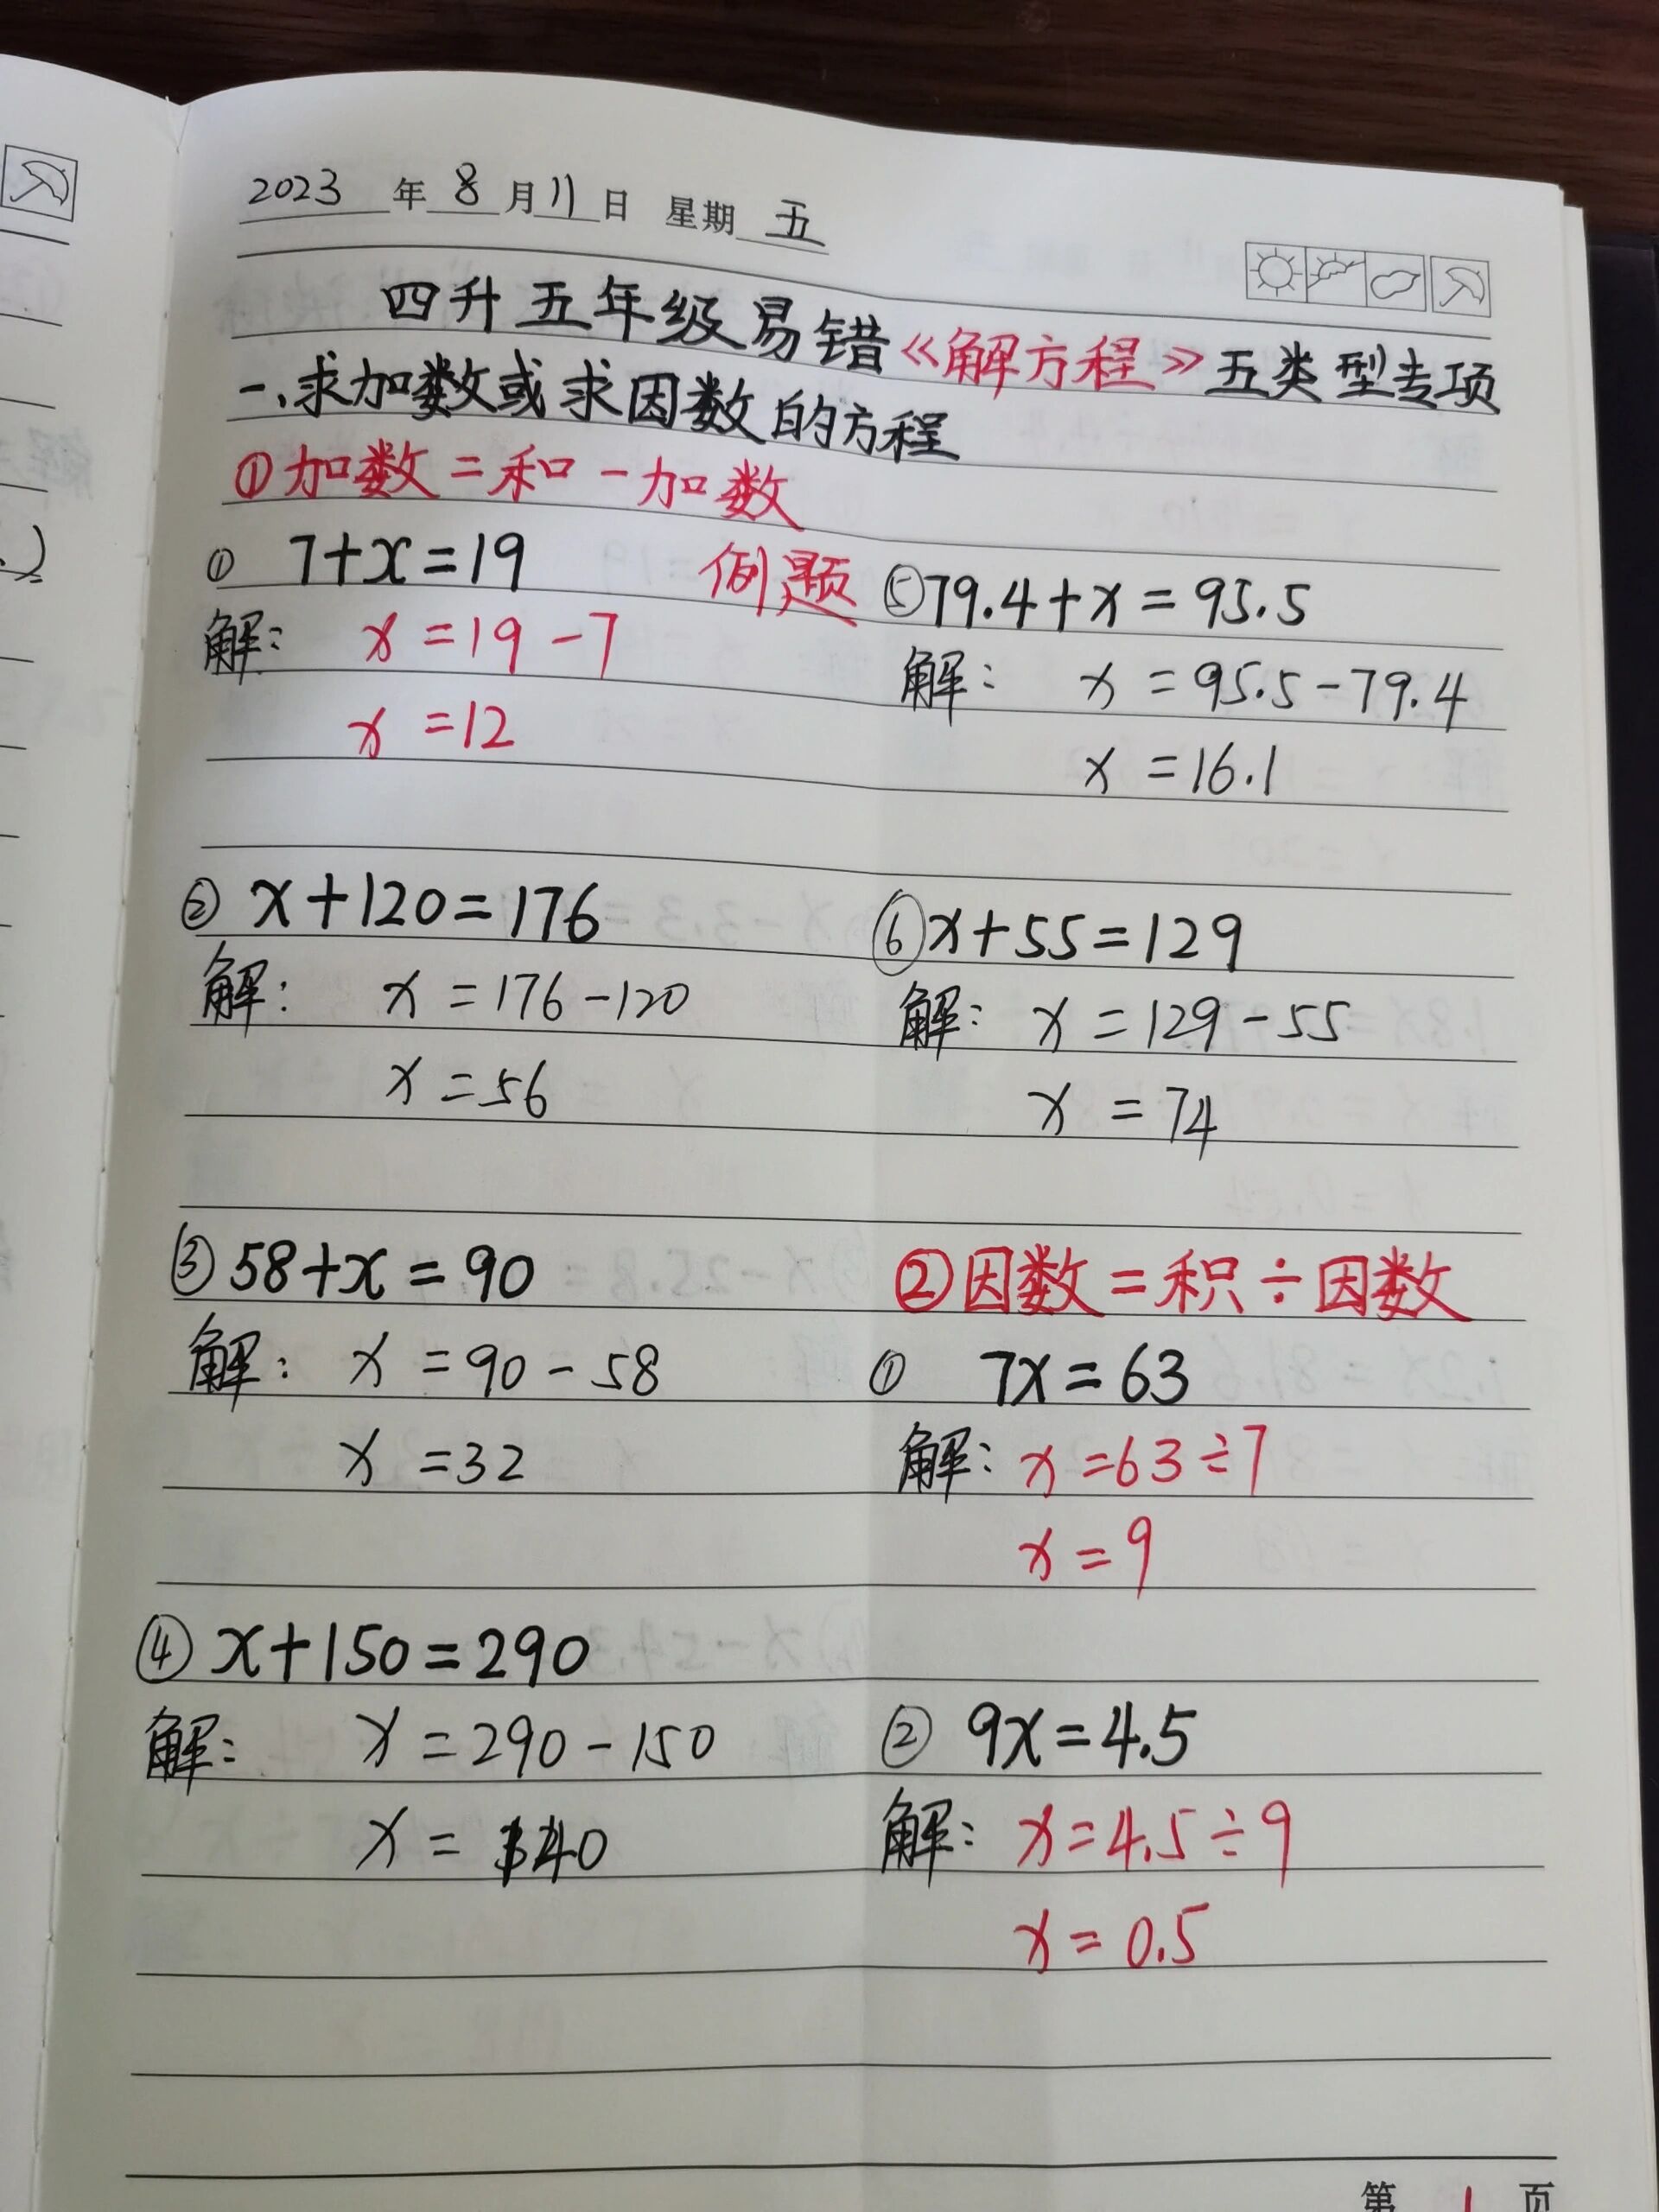 2023年8月11日 星期五
四升五年级易错《解方程》五类型专项
一、求加数或求因数的方程
①加数=和-加数
① 7+x=19 例题
解: x=19-7
x=12
② x+120=176
解: x=176-120
x=56
③ 58+x=90
解: x=90-58
x=32
④ x+150=290
解: x=290-150
x=140
⑤ 79.4+x=95.5
解: x=95.5-79.4
x=16.1
⑥ x+55=129
解: x=129-55
x=74
②因数=积÷因数
① 7x=63
解: x=63÷7
x=9
② 9x=4.5
解: x=4.5÷9
x=0.5
第 1 页